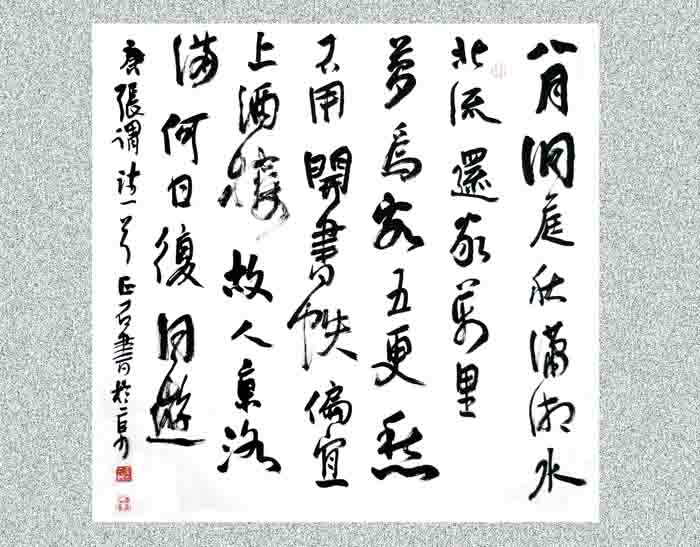 八月洞庭秋瀟湘水
北流還家萬里
夢為客五更愁
不用開書帙偏宜
上酒樓故人京洛
滿何日復同遊
唐張謂詩一首正石書於